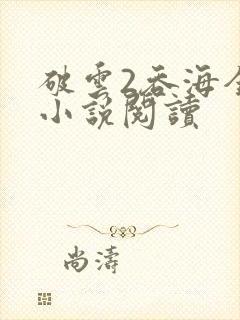 破雲2吞海全
小說閱讀
尚濤